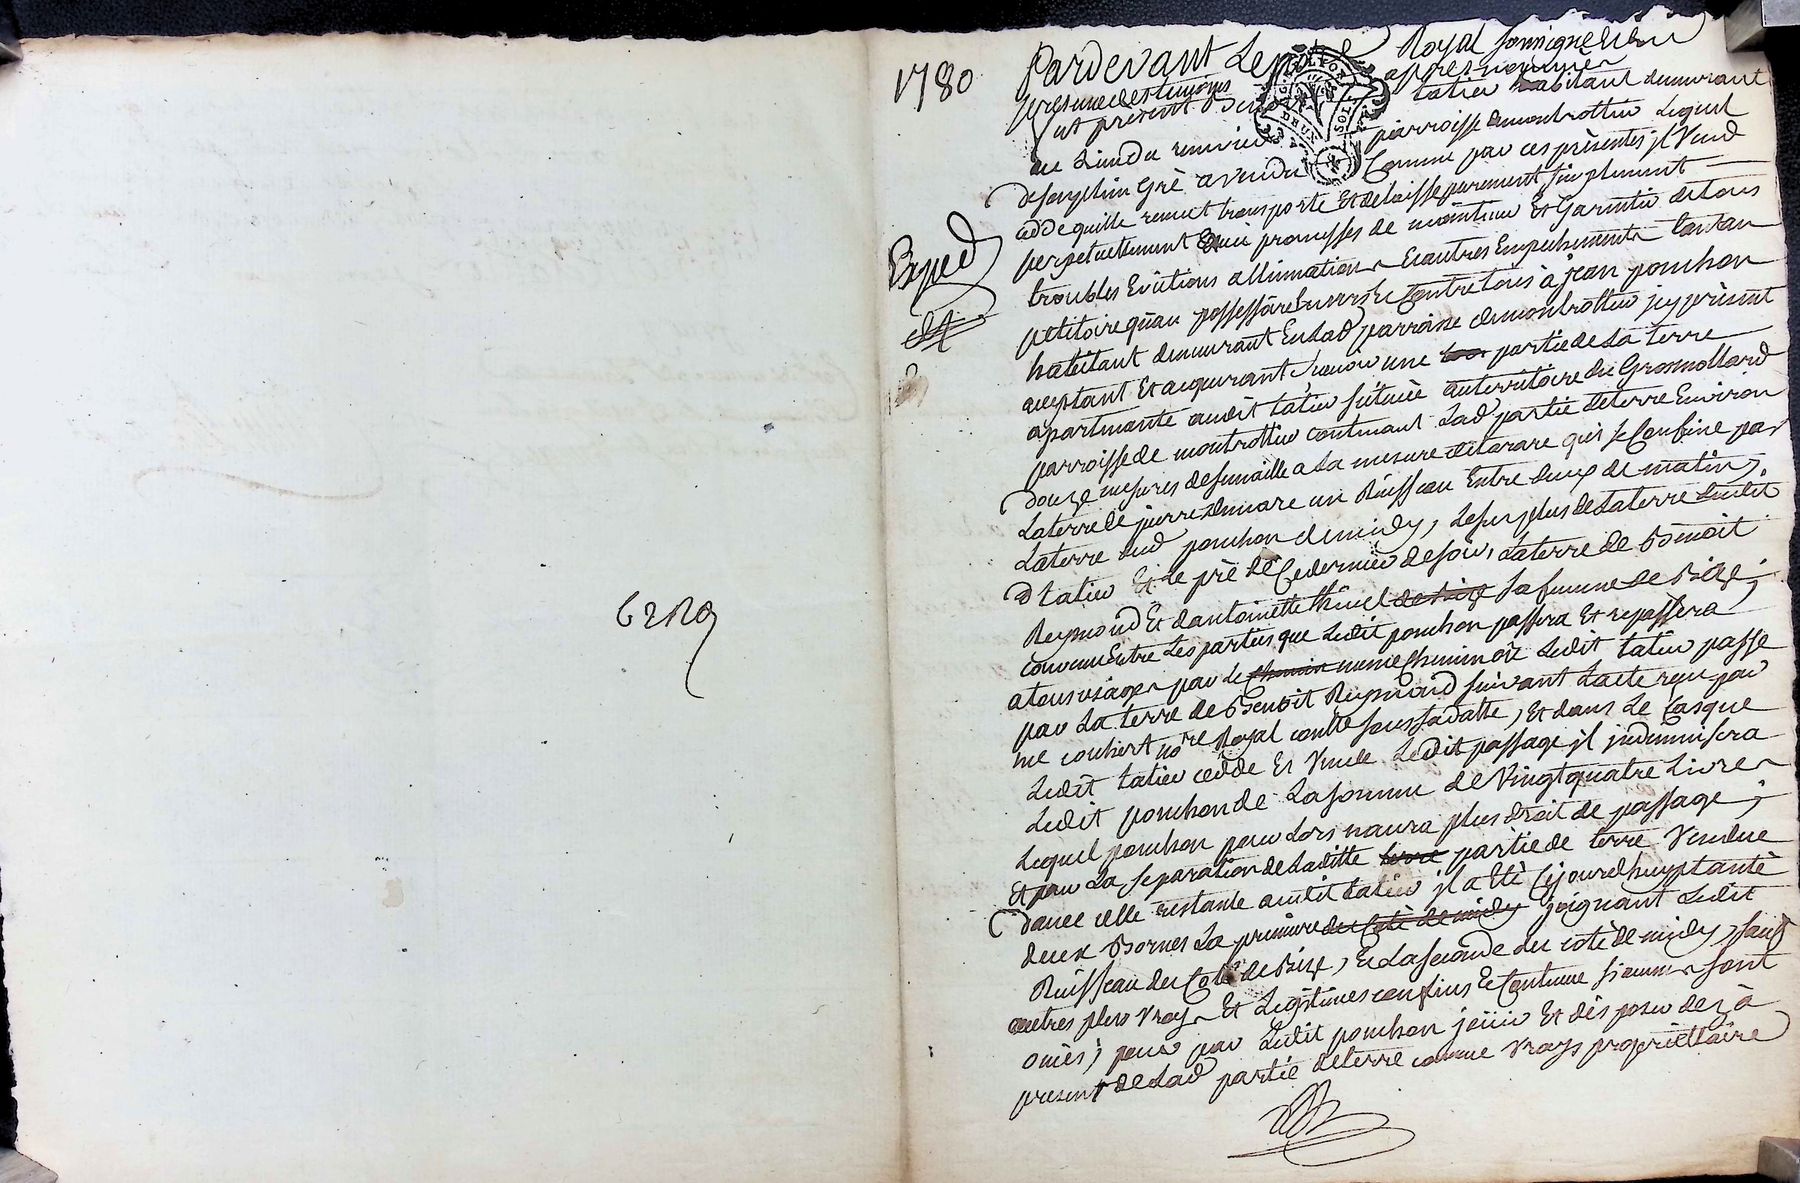 6 2 Rd
1780
Exped
Pardevant Le nore Royal soussigné Et En
presence des temoins apres nommés
fut present Benoit tatiu habitant demeurant
au Lieu du parroisse de montrottier Lequel
de son plein Gré a vendu Comme par ces présentes jl Vend
cedde quitte remet transporte Et delaisse purement simplement
perpetuellement avec promesses de maintenue Et Garentie de tous
troubles Evictions allienations Et autres Empechements tant au
petitoire qu'au possessoire Envers Et Contre tous à jean ponchon
habitant demeurant En lad parroisse de montrottier jcy présent
acceptant Et acquerant sçavoir une partie de La terre
apartenante audit tatiu située au territoire du Grosmollard
parroisse de montrottier contenant Lad partie de terre Environ
douze mesures de semaille a La mesure de tarare qui se Confine par
La terre de pierre un Ruisseau Entre deux de matin,
La terre dud ponchon de midy, Le surplus de La terre dudit
tatiu Et Le pré de Ce dernier de soir, La terre de Benoit
Reymond Et d'antoinette de bize sa femme de Bize;
convenu Entre Les parties que Ledit ponchon passera Et repassera
a tous usages par Le chemin meme Chemin où Ledit tatiu passe
par La terre de Benoit Reymond suivant L'acte reçu par
me couhert nore Royal soussa datte, Et dans Le Cas que
Ledit tatiu cedde Et Vende Ledit passage jl jndemnisera
Ledit ponchon de La somme de Vingt quatre Livres
Lequel ponchon pour Lors n'aura plus droit de passage;
Et pour La separation de Laditte terre partie de terre Vendue
d'avec celle restante audit tatiu jl a Eté Cejourdhuy planté
deux Bornes La premiere du Coté de midy joignant Ledit
Ruisseau du Coté de Bize, Et La seconde du coté de midy, sauf
autres plus Vrays Et Legitimes confins Et Contenue si aucuns sont
omis; pour par Ledit ponchon jouir Et disposer dez à
present de Lad partie de terre comme Vrays propriettaire